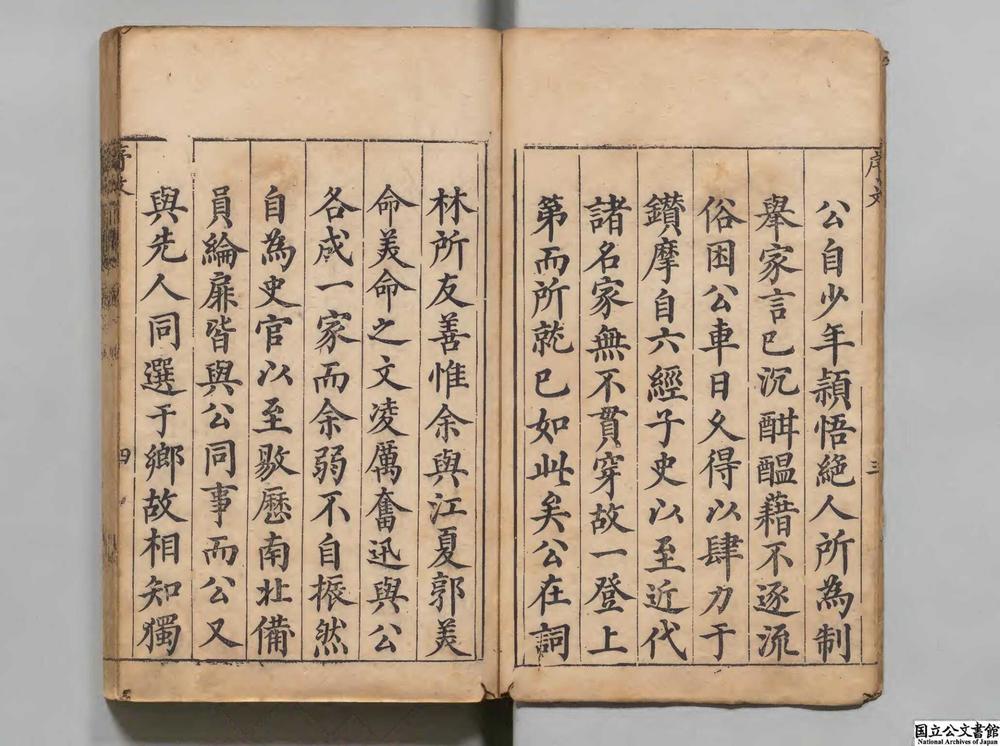 公自少年頴悟絕人所為制
舉家言已沉酣醖藉不逐流
俗困公車日久得以肆力于
鑚摩自六經子史以至近代
諸名家無不貫穿故一登上
第而所就已如此矣公在詞
林所友善惟余與江夏郭美
命美命之文凌厲奮迅與公
各成一家而余弱不自振然
自為史官以至敭歷南北備
員綸扉皆與公同事而公又
與先人同選于鄉故相知獨
序文
三
四
国立公文書館
National Archives of Japan